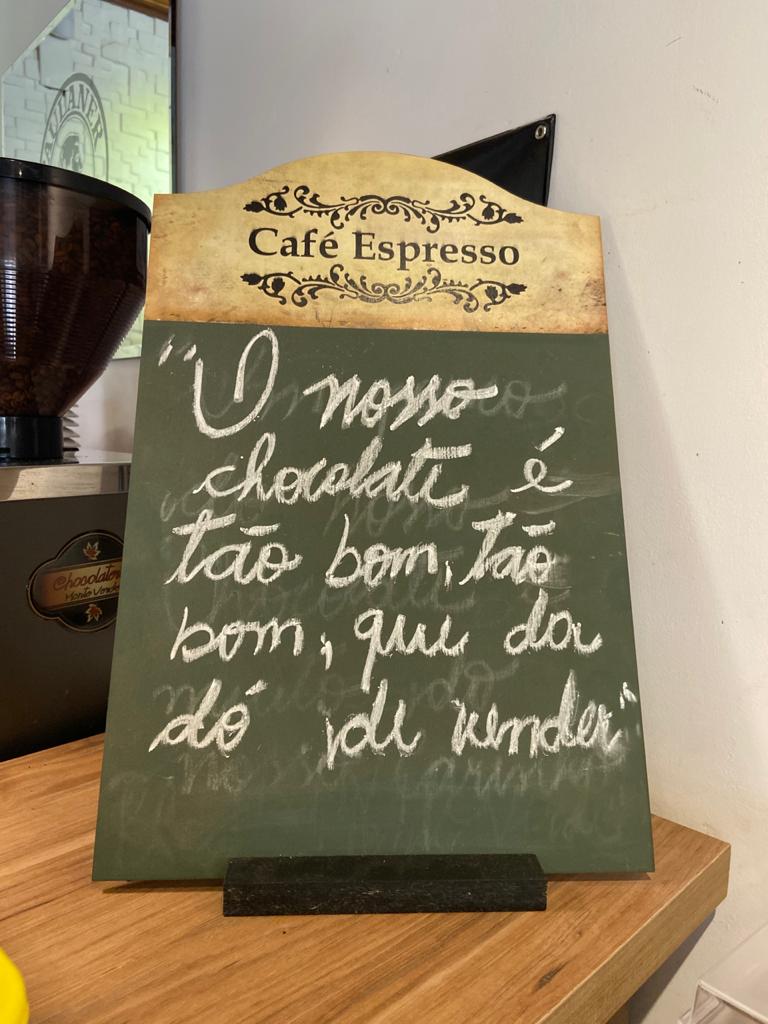 AULIANER
Café Espresso
"O nosso
chocolate é
tão bom, tão
bom, que da
dó de vender"
Chocolates
Monte Verde